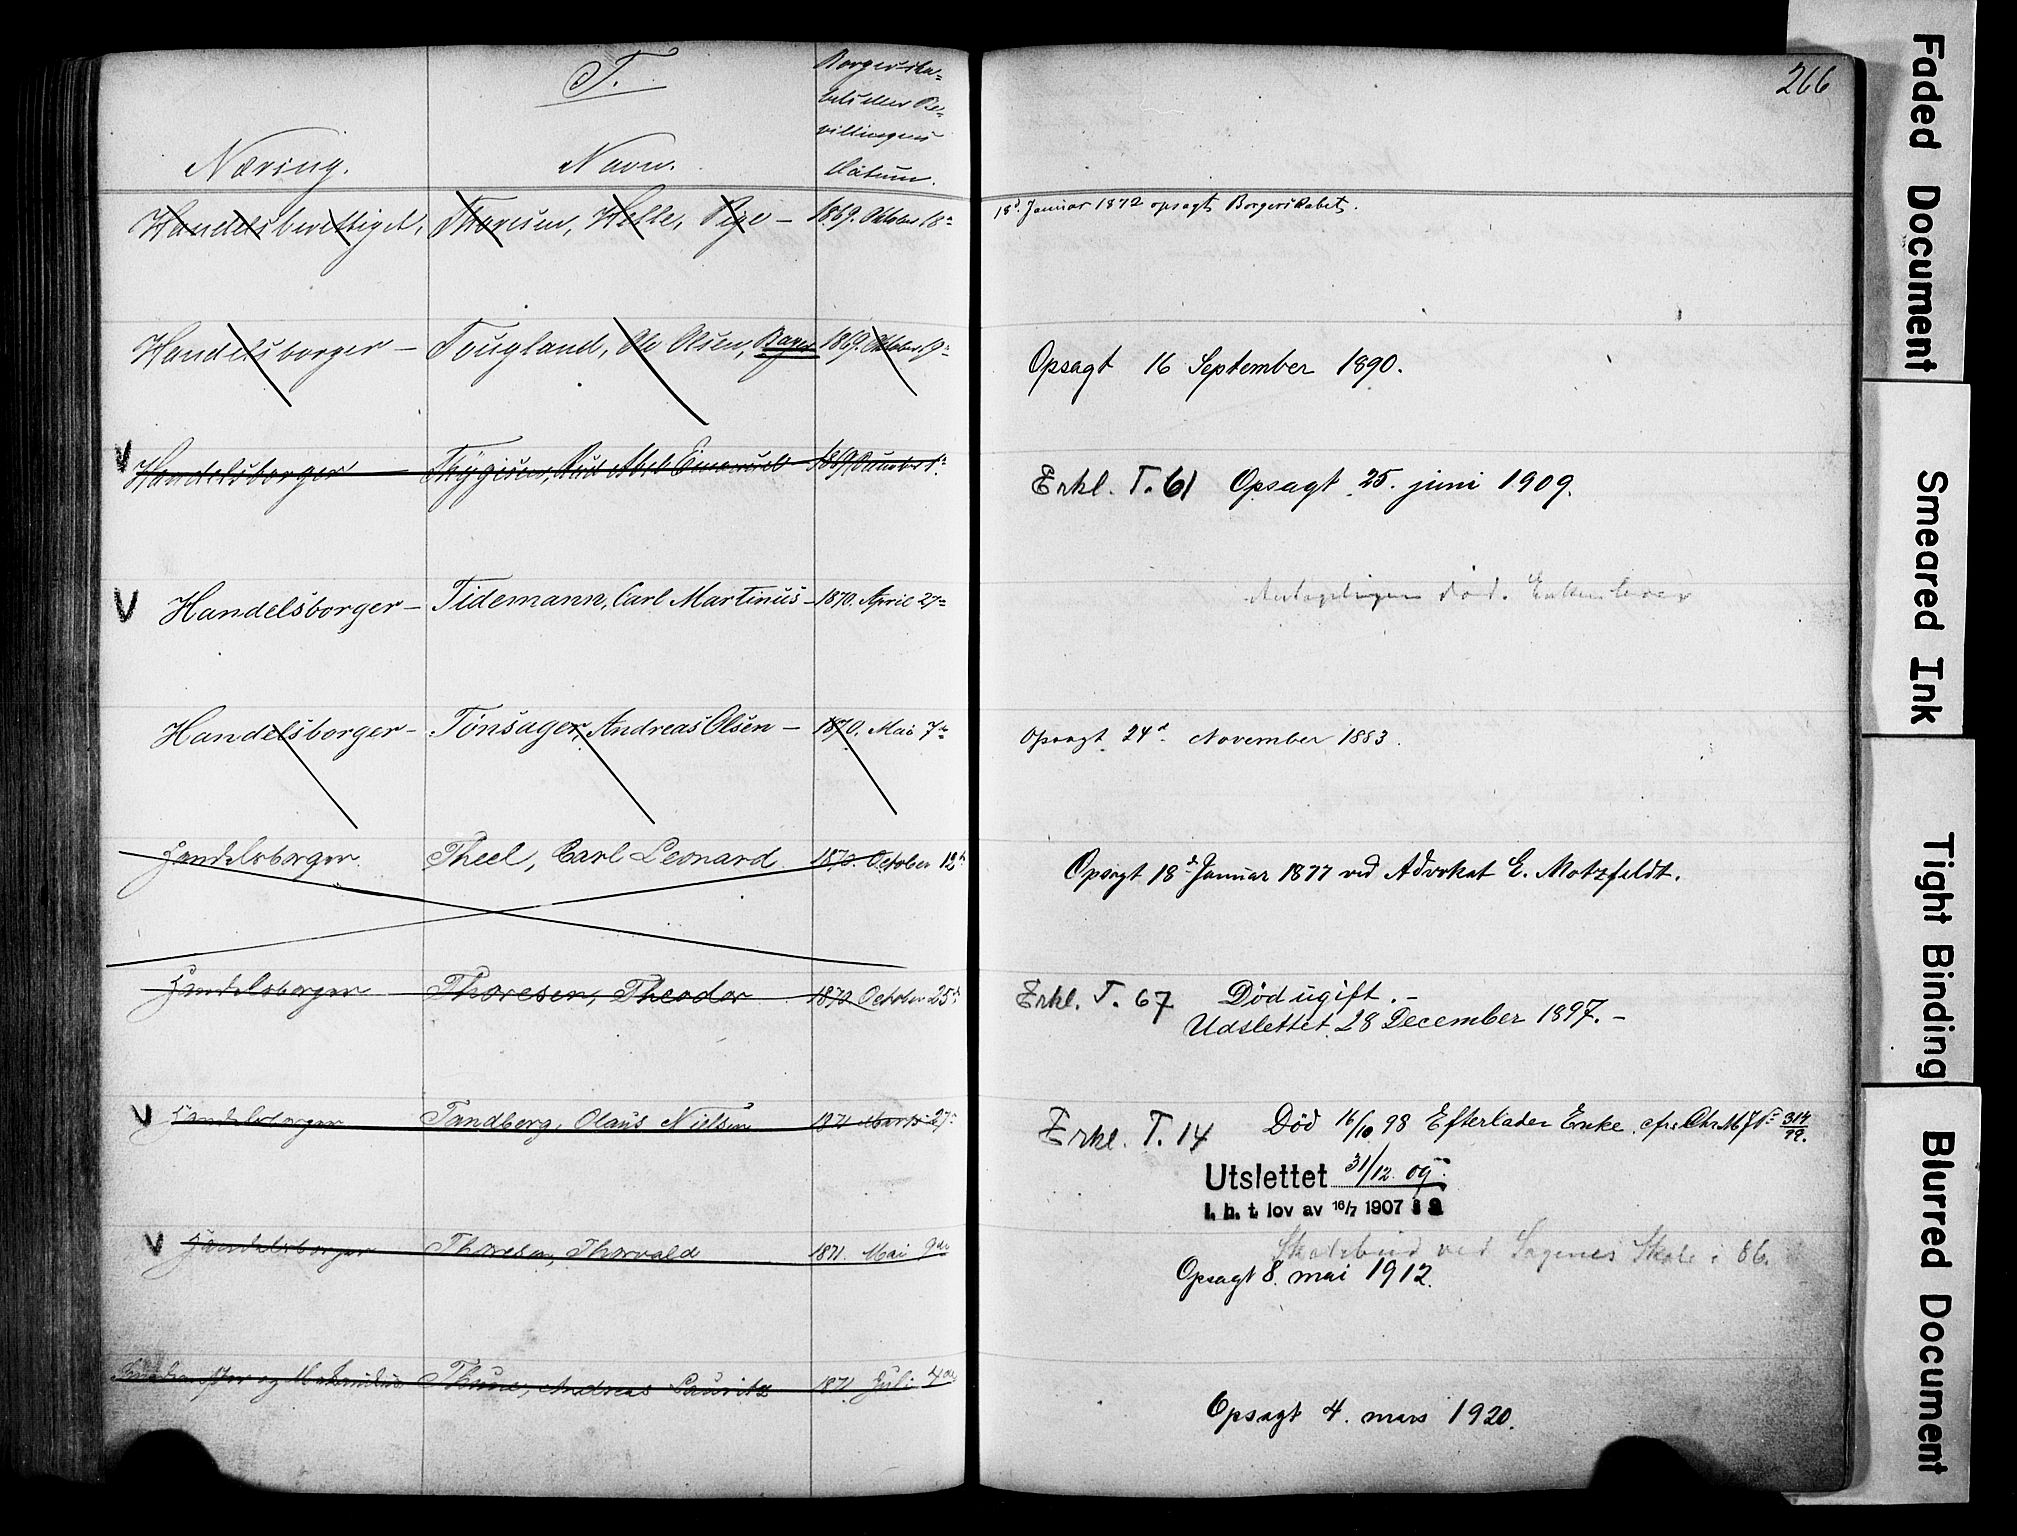 T.
266
Næring.
Navn.
Borgerska-
bets eller Be-
villingens
Datum.
Handelsberettiget, Thorsen, Helle, Pige – 1869. Oktober 18de
18d. Januar 1872 opsagt Borgerskabet.
Handelsborger – Tougland, Ole Olsen, Bager 1869. Oktober 19de
Opsagt 16 September 1890.
V Handelsborger Emanuel 1869
Erkl. T. 61 Opsagt 25. juni 1909.
V Handelsborger – Tidemann, Carl Martinus – 1870. April 27de
død. Enken lever
Handelsborger – Tonsager, Andreas Olsen – 1870. Mai 7de
Opsagt 24d November 1883.
Handelsborger Theel, Carl Leonard 1870. October 12te
Opsagt 18d Januar 1877 ved Advokat E. Motzfeldt.
Handelsborger Thoresen, Theodor 1870 October 25de
Erkl. T. 67 Død ugift. –
Udslettet 28 December 1897. –
V Handelsborger Tandberg, Olaus Nielsen 1871 Marts 27de
Erkl. T. 14 Død 16/10 98 Efterlader Enke. cfr. 314/99.
Utslettet 31/12 09
i. h. t. lov av 16/7 1907 § 9
V Handelsborger Thoresen, Thorvald 1871. Mai 9de
Skolebud ved Sagenes Skole i 86.
Opsagt 8. mai 1912.
og Thune, Andreas Lauritz 1871 Juli 4de
Opsagt 4. mars 1920.
Faded Document
Smeared Ink
Tight Binding
Blurred Document